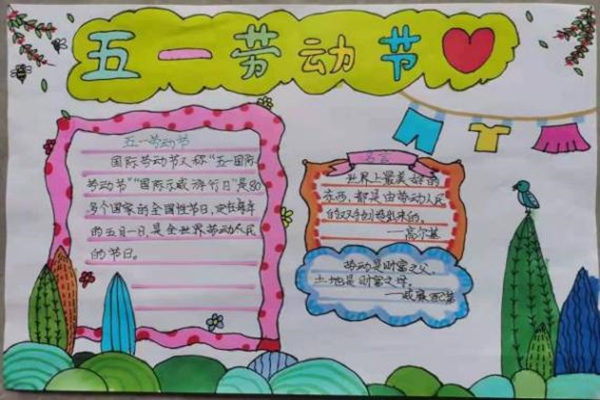 五一劳动节
五一劳动节
国际劳动节又称“五一国际
劳动节”“国际示威游行日”是80
多个国家的全国性节日,定在每年
的五月一日,是全世界劳动人民
的节日。
名言
世界上最美好的
东西,都是由劳动人民
的双手创造出来的。
—高尔基
劳动是财富之父,
土地是财富之母。
—威廉配第